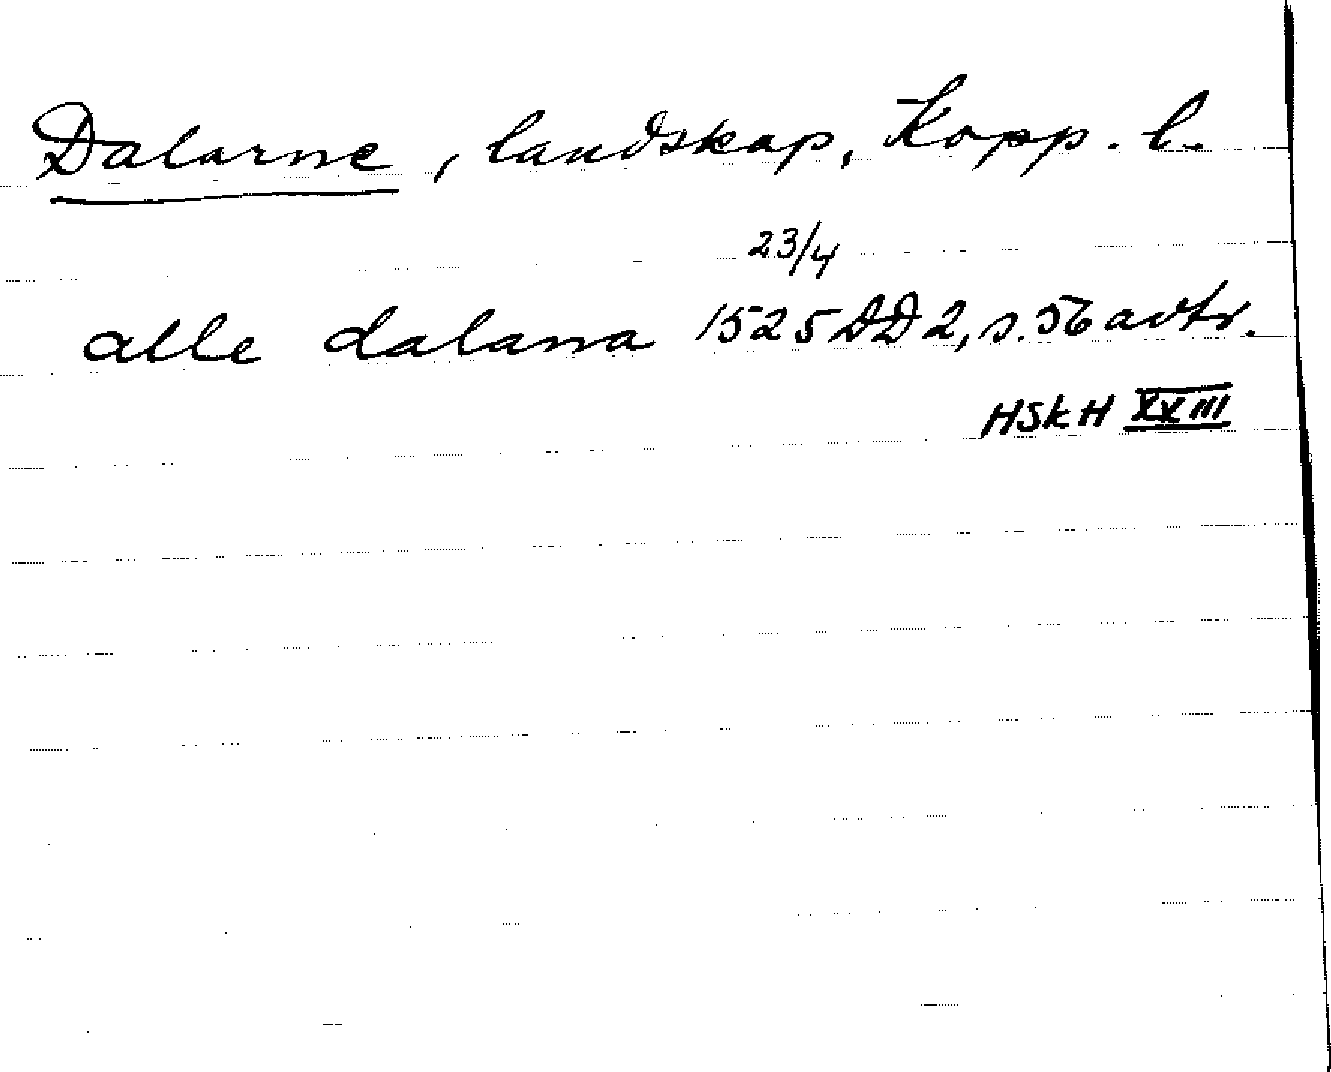 Dalarne, landskap, Kopp. l.
23/4
alle dalana 1525 DD 2, s. 56 avtr.
HSkH XXIII